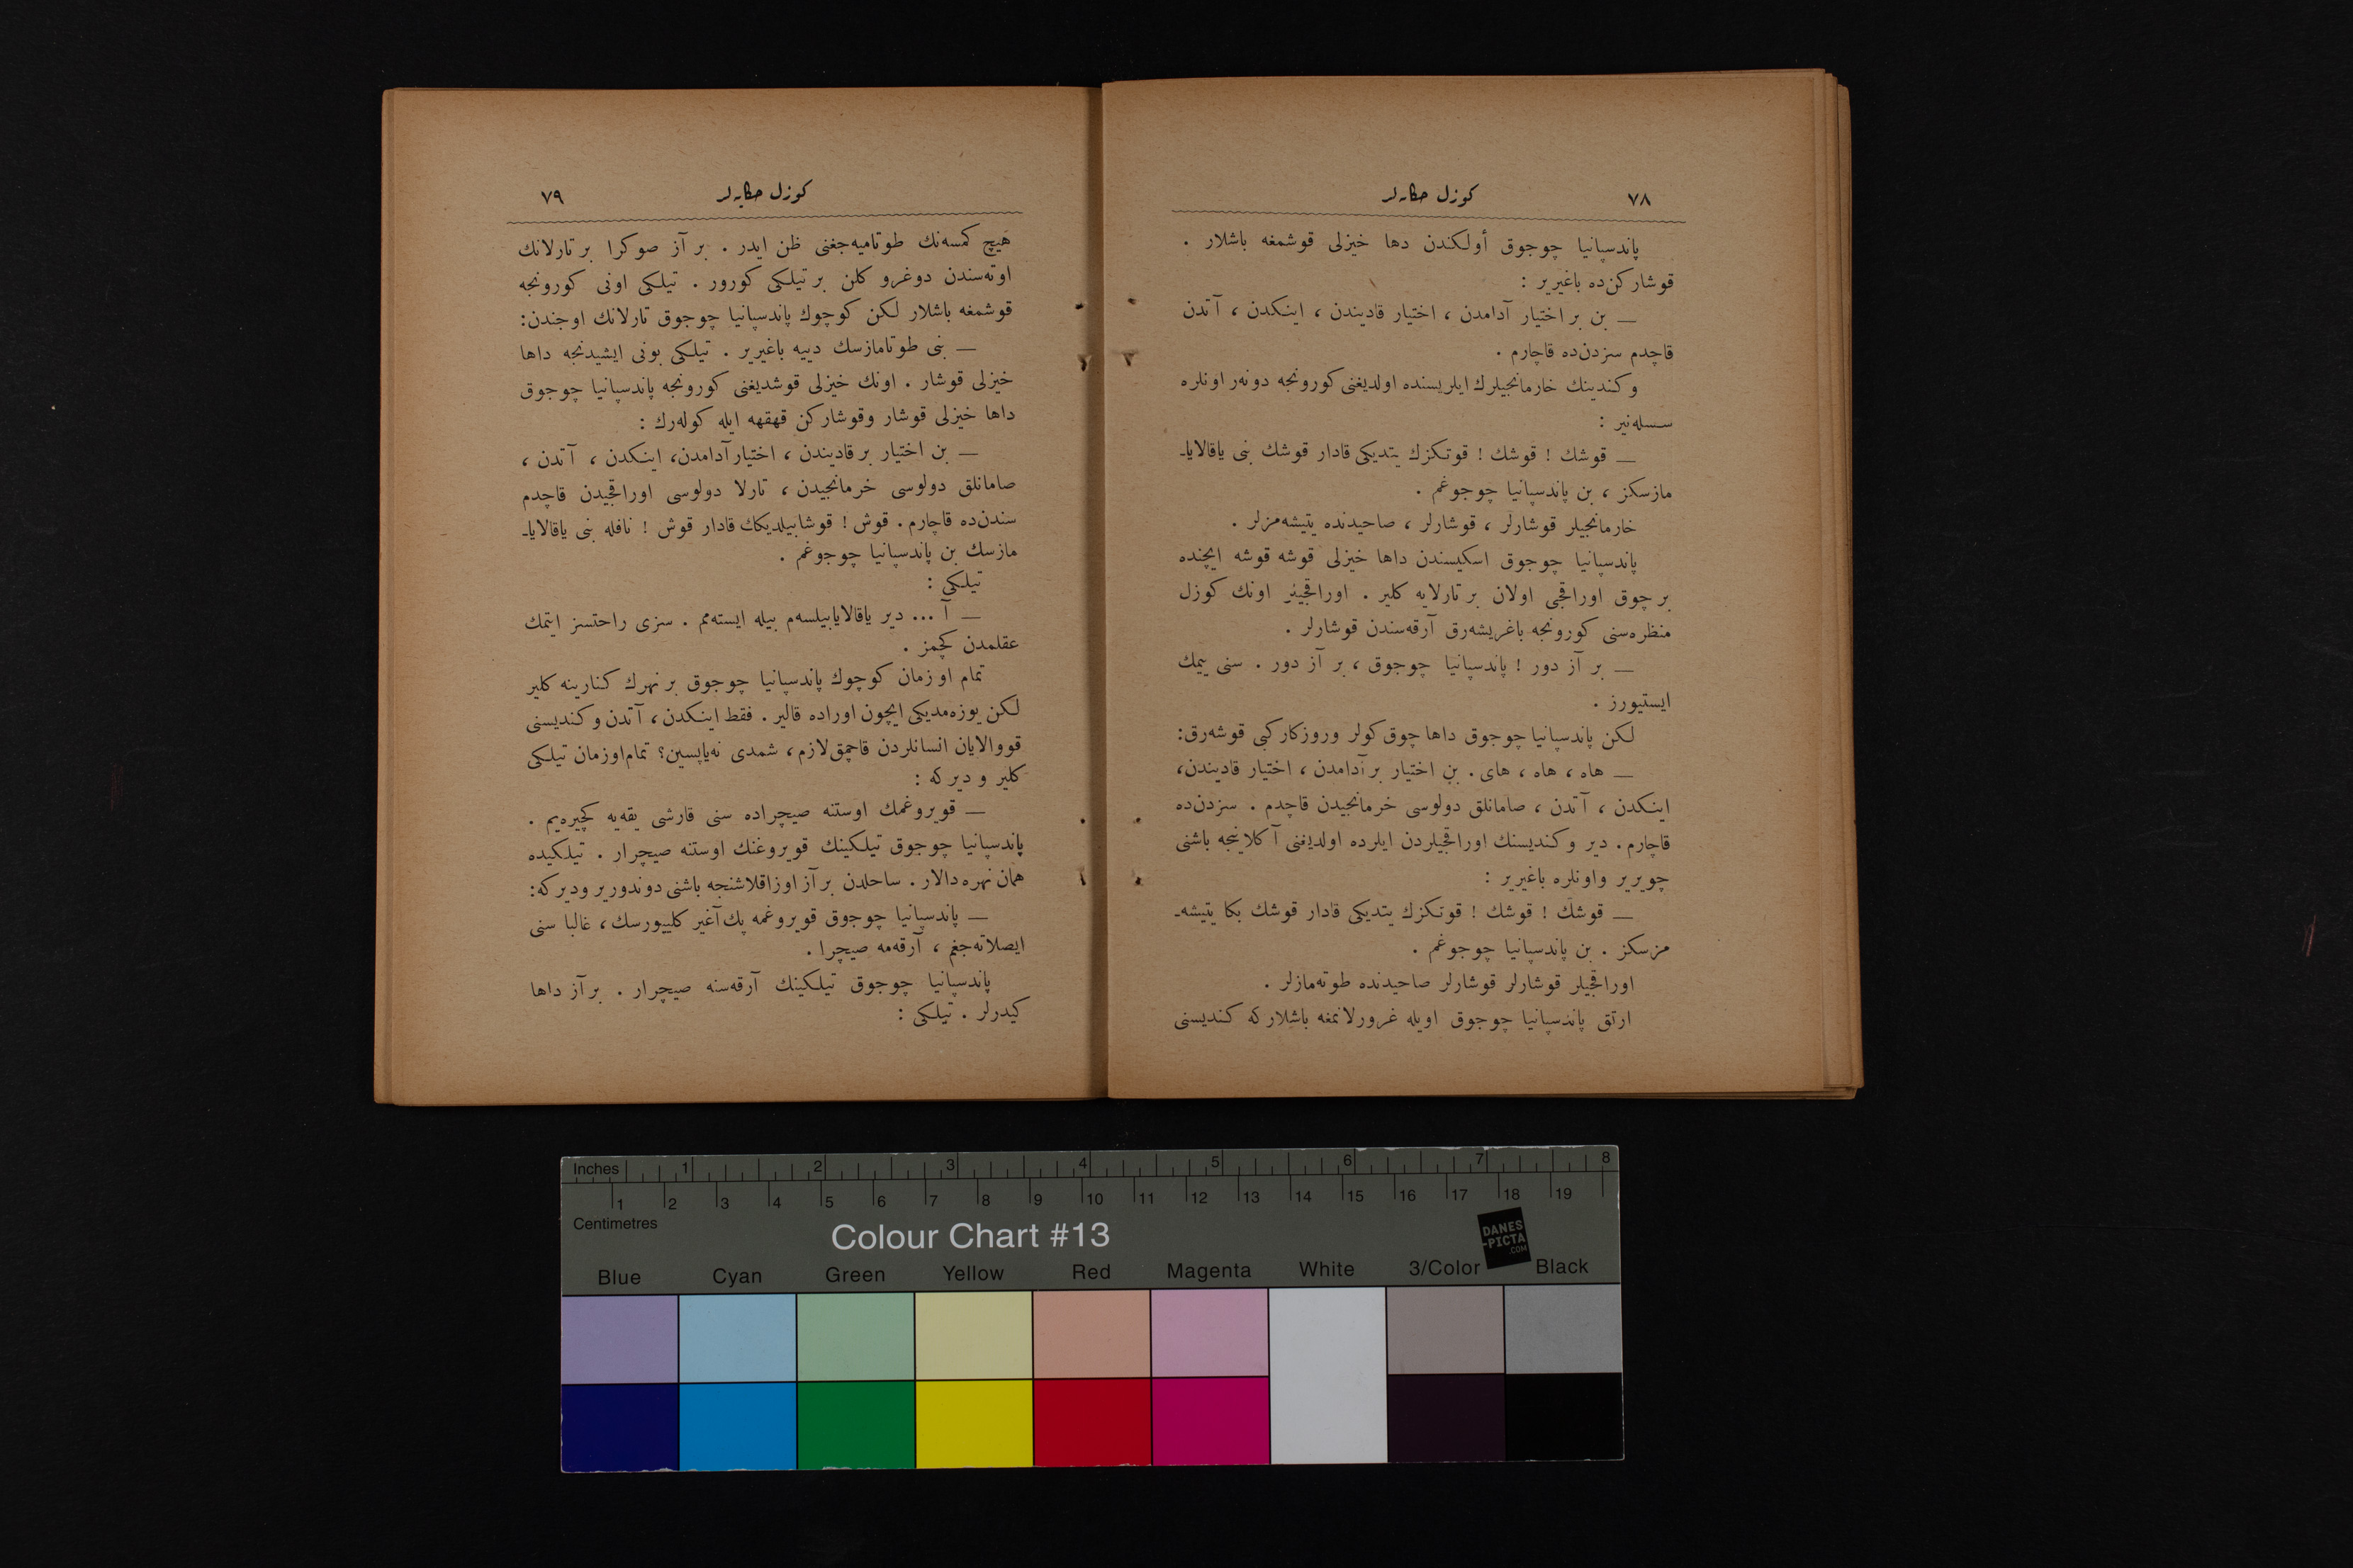 ٧٨
كوزل حكايه‌لر
پاندسپانيا چوجوق أولكندن دها خيزلى قوشمغه باشلار .
قوشاركن‌ده باغيرير :
— بن بر اختيار آدامدن ، اختيار قاديندن ، اينكدن ، آتدن
قاچدم سزدن‌ده قاچارم .
وكندينك خارمانجيلرك ايلريسنده اولديغنى كورونجه دونه‌ر اونلره
سسله‌نير :
— قوشك ! قوشك ! قوتكزك يتديكى قادار قوشك بنى ياقالايا-
مازسكز ، بن پاندسپانيا چوجوغم .
خارمانجيلر قوشارلر ، قوشارلر ، صاحيدنده يتيشه‌مزلر .
پاندسپانيا چوجوق اسكيسندن داها خيزلى قوشه قوشه ايچنده
بر چوق اوراقجى اولان بر تارلايه كلير . اوراقجينر اونك كوزل
منظره‌سنى كورونجه باغريشه‌رق آرقه‌سندن قوشارلر .
— بر آز دور ! پاندسپانيا چوجوق ، بر آز دور . سنى ييمك
ايستيورز .
لكن پاندسپانيا چوجوق داها چوق كولر وروزكار كبى قوشه‌رق:
— هاه ، هاه ، هاى . بن اختيار بر آدامدن ، اختيار قاديندن،
اينكدن ، آتدن ، صامانلق دولوسى خرمانجيدن قاچدم . سزدن‌ده
قاچارم . دير وكنديسنك اوراقجيلردن ايلرده اولديغنى آكلاينجه باشنى
چويرير واونلره باغيرير :
— قوشك ! قوشك ! قوتكزك يتديكى قادار قوشك بكا يتيشه-
مزسكز . بن پاندسپانيا چوجوغم .
اوراقجيلر قوشارلر قوشارلر صاحيدنده طوته‌مازلر .
ارتق پاندسپانيا چوجوق اويله غرورلانمغه باشلاركه كنديسنى
كوزل حكايه‌لر
٧٩
هيچ كمسه‌نك طوتاميه‌جغنى ظن ايدر . بر آز صوكرا بر تارلانك
اوته‌سندن دوغرو كلن بر تيلكى كورور . تيلكى اونى كورونجه
قوشمغه باشلار لكن كوچوك پاندسپانيا چوجوق تارلانك اوجندن:
— بنى طوتامازسك دييه باغيرير . تيلكى بونى ايشيدنجه داها
خيزلى قوشار . اونك خيزلى قوشديغنى كورونجه پاندسپانيا چوجوق
داها خيزلى قوشار وقوشاركن قهقهه ايله كوله‌رك :
— بن اختيار بر قاديندن ، اختيار آدامدن، اينكدن ، آتدن ،
صامانلق دولوسى خرمانجيدن ، تارلا دولوسى اوراقجيدن قاچدم
سندن‌ده قاچارم . قوش ! قوشابيلديكك قادار قوش ! نافله بنى ياقالايا-
مازسك بن پاندسپانيا چوجوغم .
تيلكى :
— آ ... دير ياقالايابيلسه‌م بيله ايسته‌مم . سزى راحتسز ايتمك
عقلمدن كچمز .
تمام او زمان كوچوك پاندسپانيا چوجوق بر نهرك كنارينه كلير
لكن يوزه‌مديكى ايچون اوراده قالير . فقط اينكدن ، آتدن وكنديسنى
قووالايان انسانلردن قاچمق لازم ، شمدى نه‌ياپسين؟ تمام اوزمان تيلكى
كلير و ديركه :
— قويروغمك اوستنه صيچراده سنى قارشى يقه‌يه كچيره‌يم .
پاندسپانيا چوجوق تيلكينك قويروغنك اوستنه صيچرار . تيلكيده
همان نهره دالار . ساحلدن بر آز اوزاقلاشنجه باشنى دوندورير وديركه:
— پاندسپانيا چوجوق قويروغمه پك آغير كلييورسك ، غالبا سنى
ايصلاته‌جغم ، آرقه‌مه صيچرا .
پاندسپانيا چوجوق تيلكينك آرقه‌سنه صيچرار . بر آز داها
كيدرلر . تيلكى :
Inches 1 2 3 4 5 6 7 8
1 2 3 4 5 6 7 8 9 10 11 12 13 14 15 16 17 18 19
Centimetres
Colour Chart #13
DANES
-PICTA
.COM
Blue Cyan Green Yellow Red Magenta White 3/Color Black